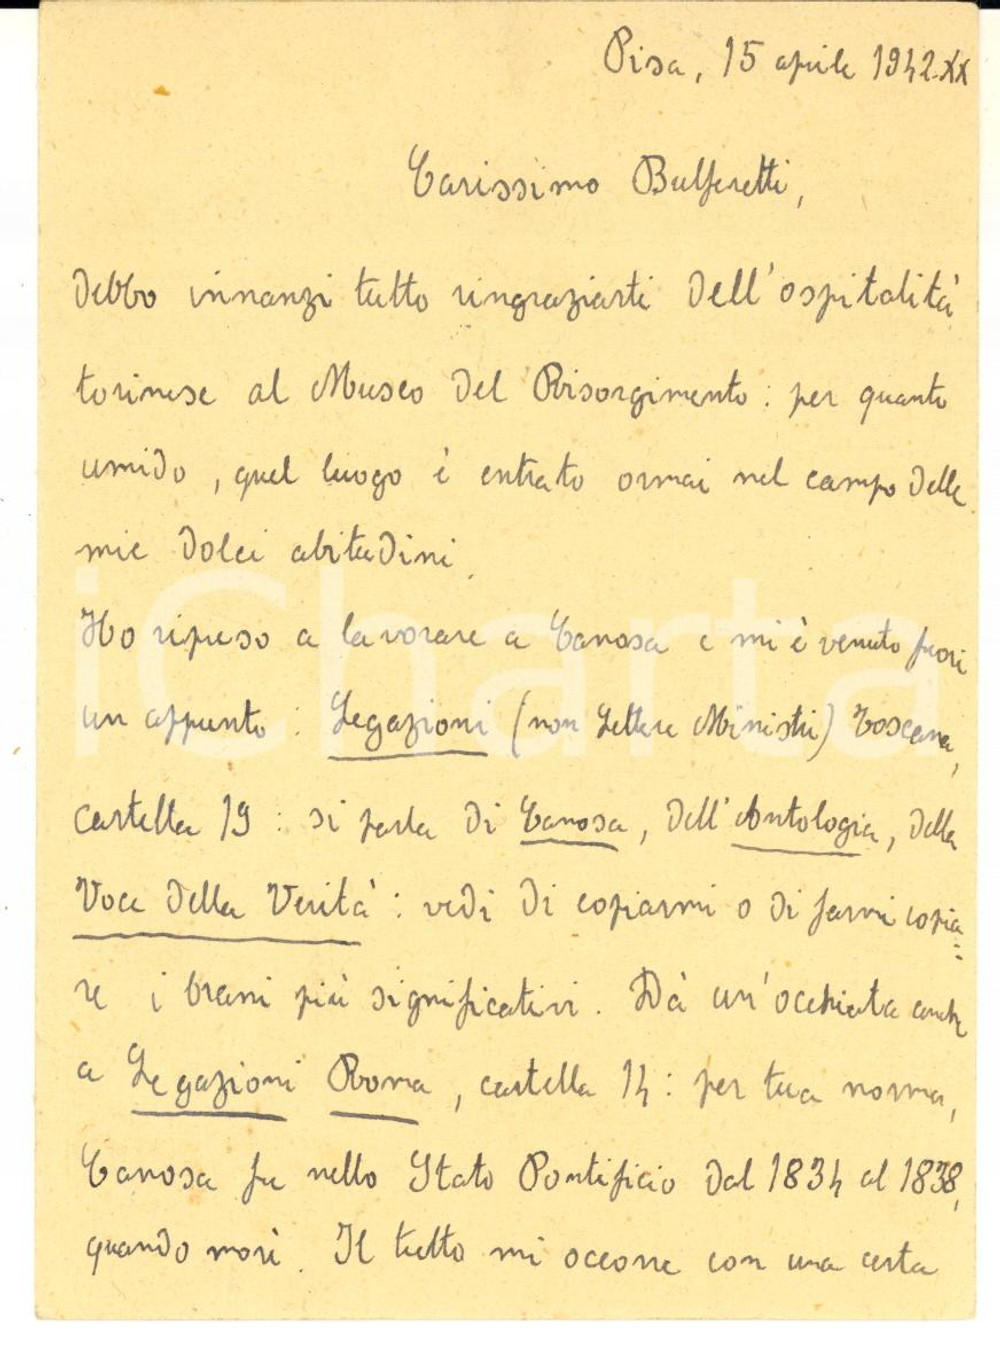 Pisa, 15 aprile 1942.XX
Carissimo Bulferetti,
debbo innanzi tutto ringraziarti dell'ospitalità
torinese al Museo del Risorgimento: per quanto
umido, quel luogo è entrato ormai nel campo delle
mie dolci abitudini.
Ho ripreso a lavorare a Canosa e mi è venuto fuori
un appunto: Legazioni (non Lettere Ministri) Toscana,
cartella 19: si parla di Canosa, dell'Antologia, della
Voce della Verità: vedi di copiarmi o di farmi copia=
re i brani più significativi. Dà un'occhiata anche
a Legazioni Roma, cartella 14: per tua norma,
Canosa fu nello Stato Pontificio dal 1834 al 1838,
quando morì. Il tutto mi occorre con una certa
iCharta